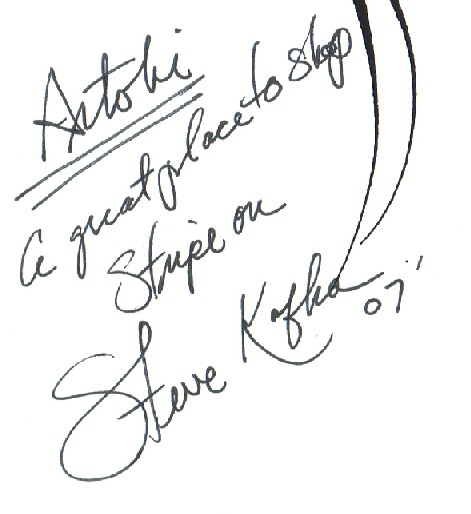 Artohi
A great place to shop
Stripe on
Steve Kafka 07'